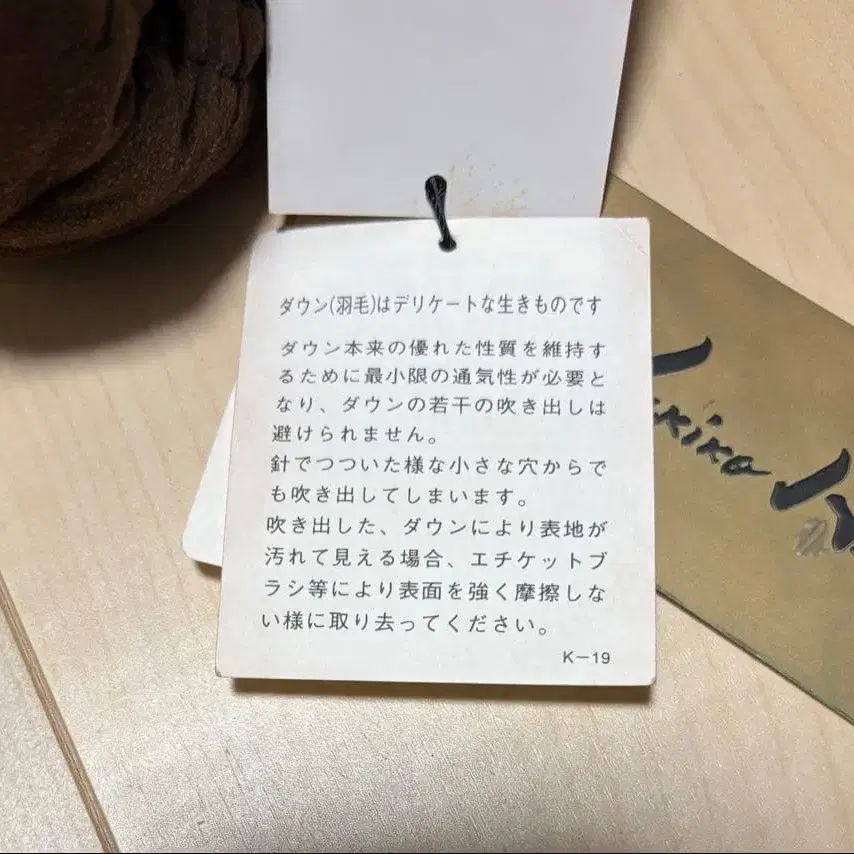 ダウン(羽毛)はデリケートな生きものです
ダウン本来の優れた性質を維持す
るために最小限の通気性が必要と
なり、ダウンの若干の吹き出しは
避けられません。
針でつついた様な小さな穴からで
も吹き出してしまいます。
吹き出した、ダウンにより表地が
汚れて見える場合、エチケットブ
ラシ等により表面を強く摩擦しな
い様に取り去ってください。
K-19